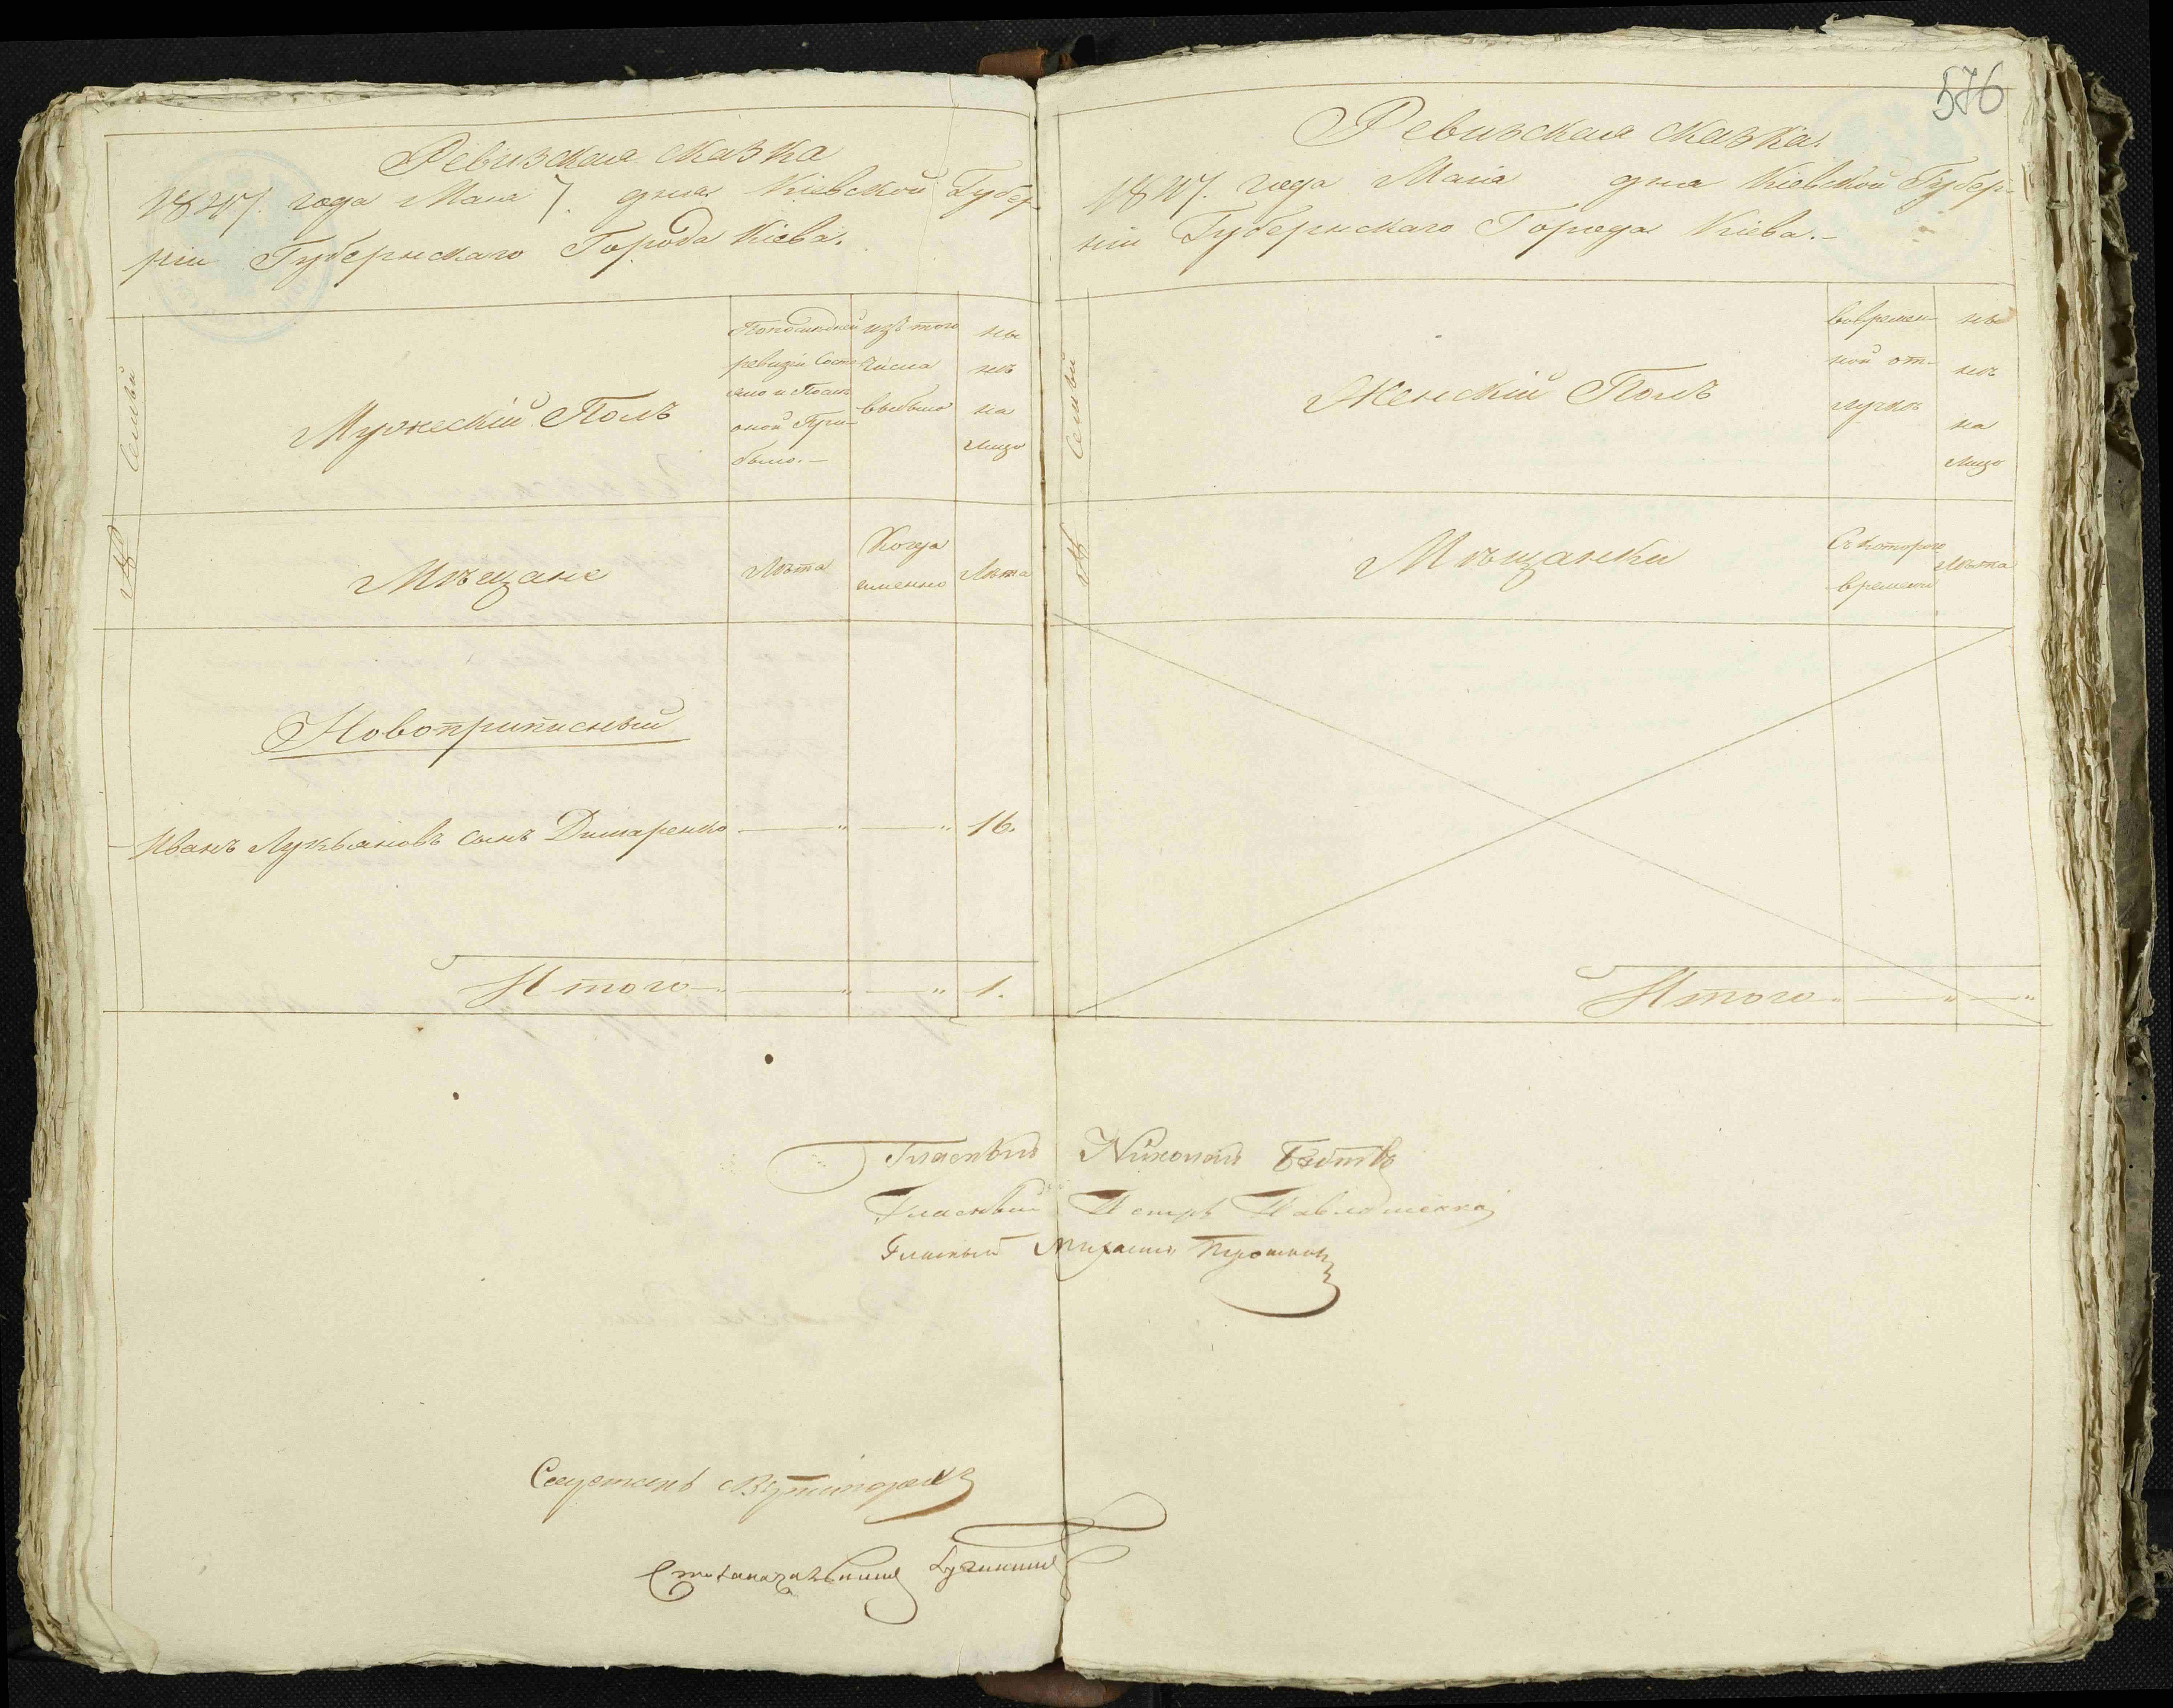 Ревизская сказка
1847. года Мая 7. дня Кіевской Губер
ніи Губернскаго Города Кіева.
№ Семьи
Мужескій Полъ
По последней
ревизіи Состо
яло и После
оной При-
было.-
изъ того
числа
выбыло
ны
нѣ
на
Лицо
Мѣщане
Лѣта
Когда
именно
Лѣта
Новоприписный
Иванъ Лукьяновъ сынъ Димаренко — " — " 16.
Итого " — " — " 1.
576
Ревизская сказка.
1847. года Маія дня Кіевской Губер-
ніи Губернскаго Города Кіева.-
№ Семьи
Женскій Полъ
во времен-
ной от-
лучкѣ
ны
нѣ
на
Лицо
Мѣщанки
Съ котораго
времени
Лѣта
Итого " — " — "
Гласный Николай
Гласный Петръ
Гласный Михаилъ
Столоначальникъ